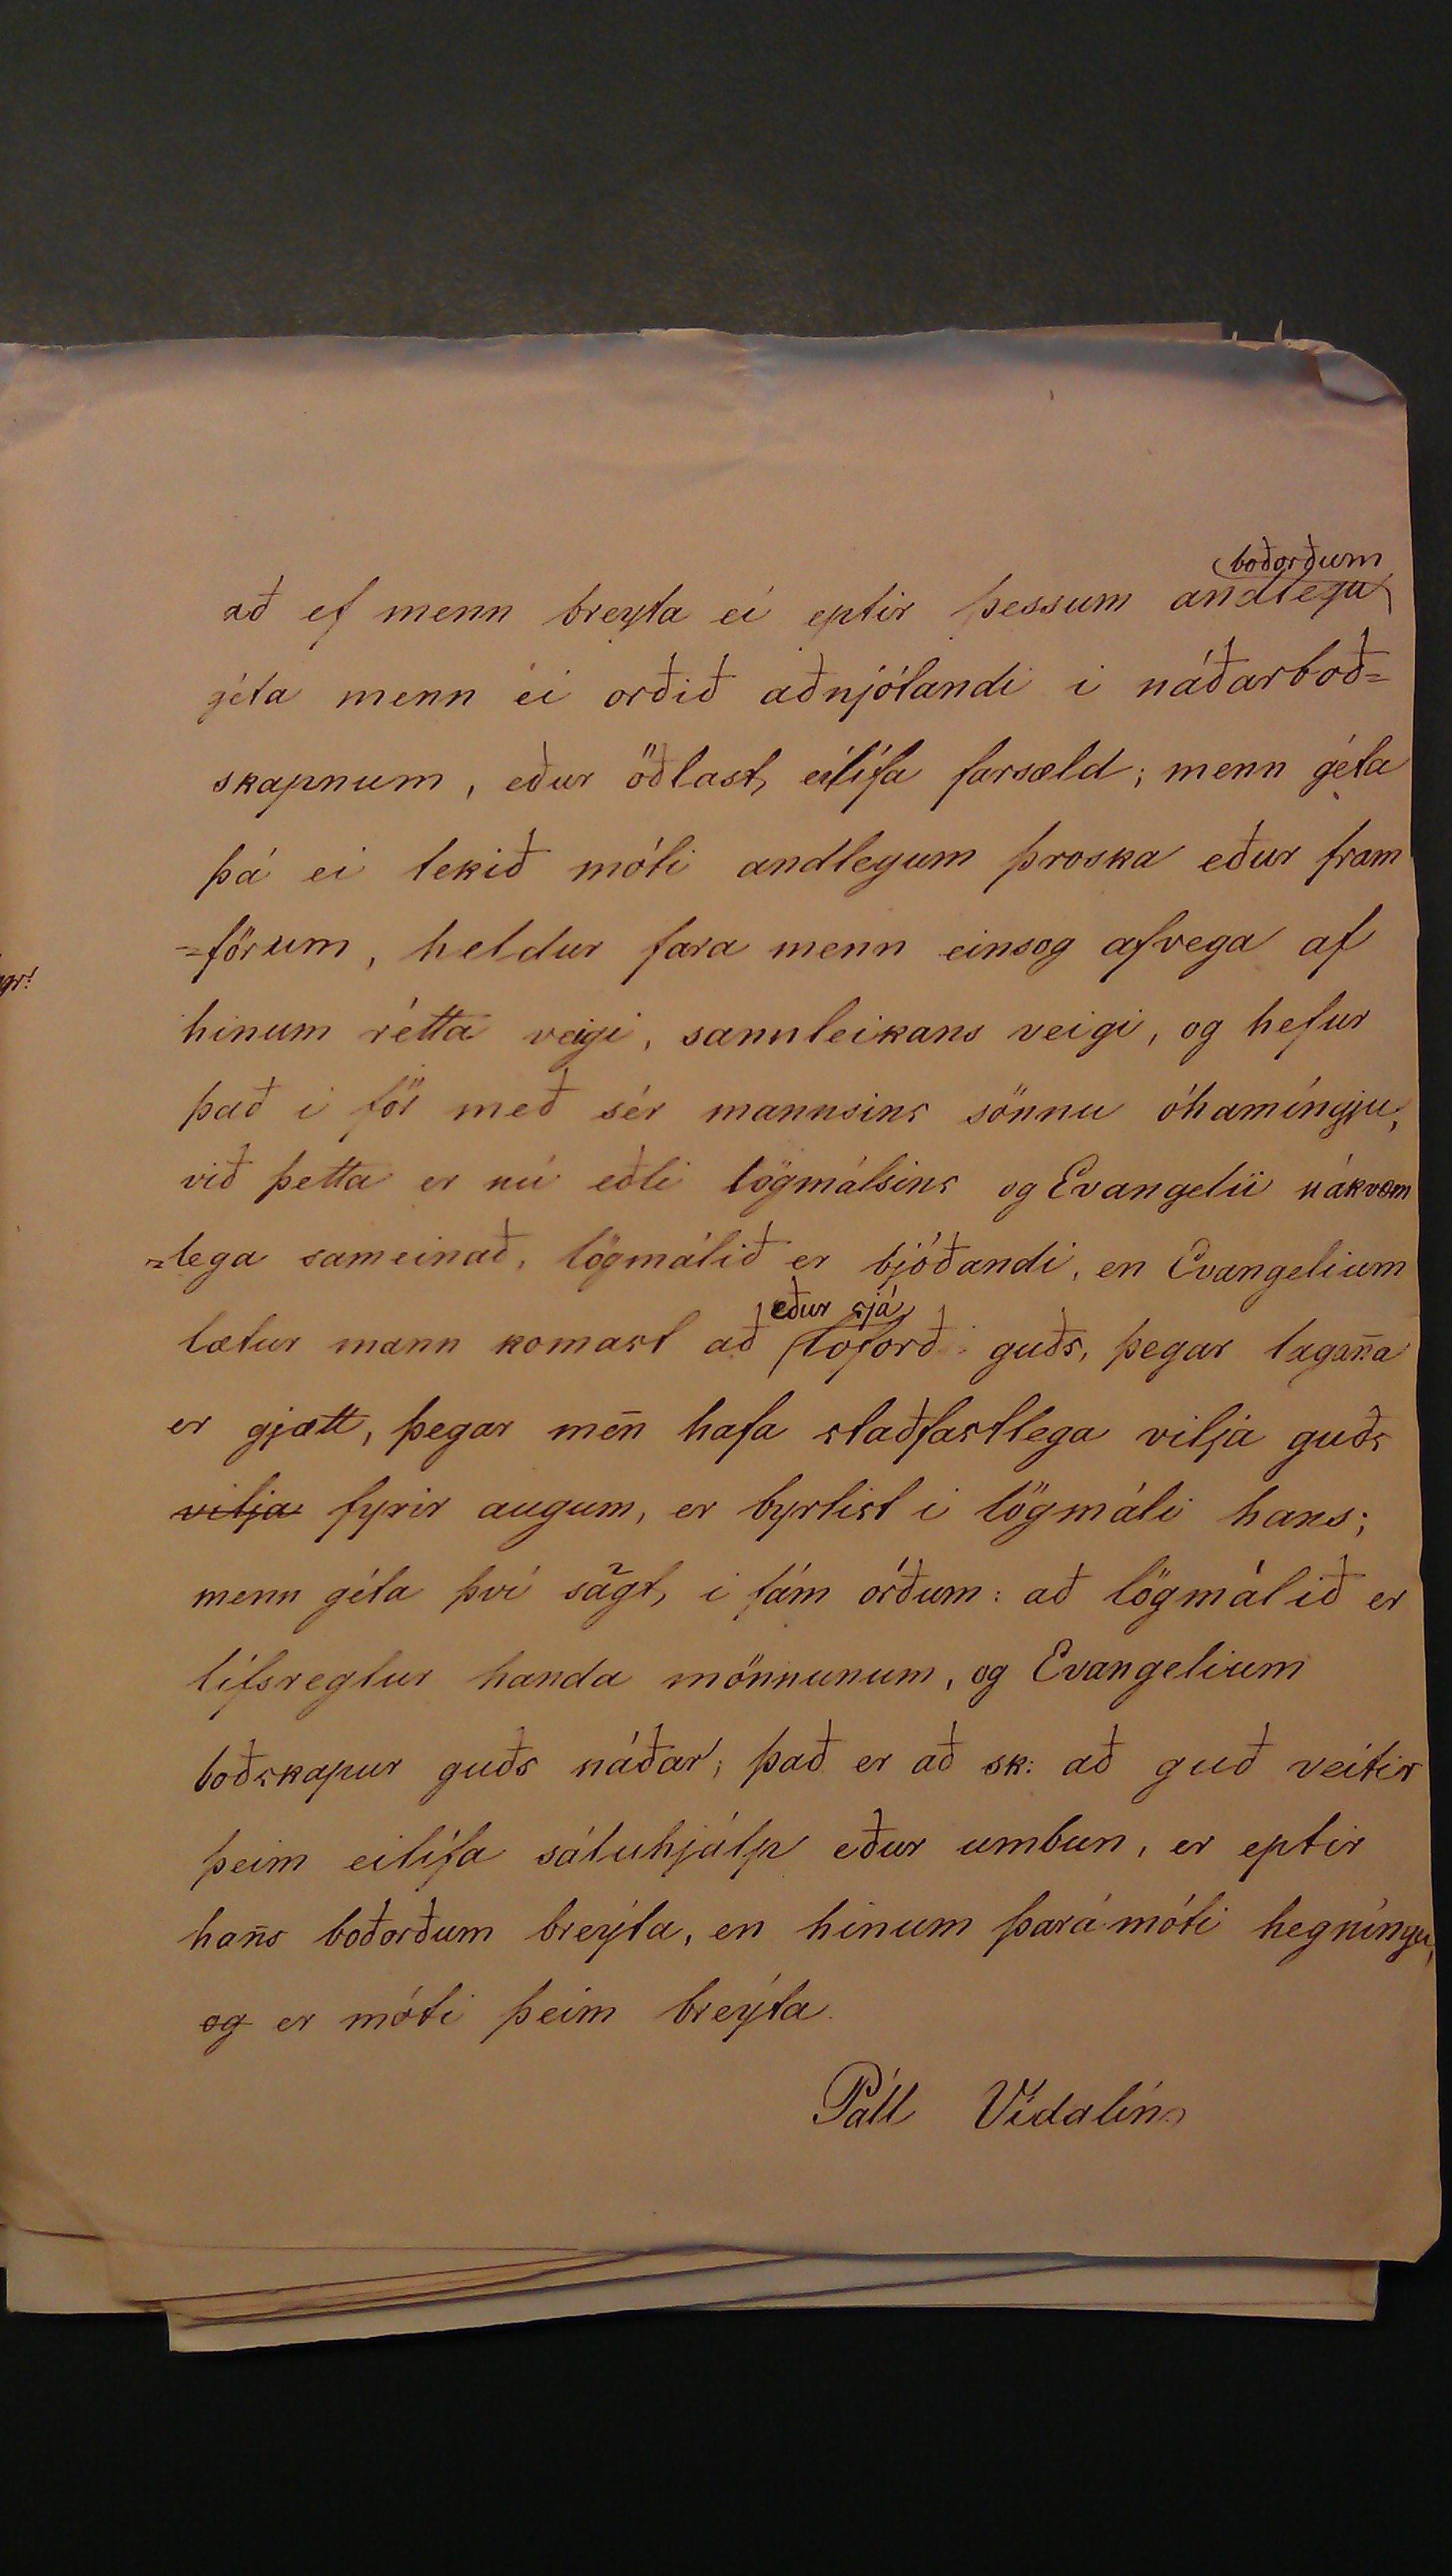 boðorðum
að ef menn breyta ei eptir þessum andlegu
géta menn ei orðið aðnjótandi i náðarboð=
skapnum, eður öðlast, eilífa farsæld; menn géta
þá ei tekið móti andlegum þroska eður fram
=förum, heldur fara menn einsog afvega af
hinum rétta veigi, sannleikans veigi, og hefur
það i för með sér mannsins sönnu óhamíngju,
við þetta er nú eðli lögmálsins og Evangelii nákvæm
=lega sameinað, lögmálið er bjóðandi, en Evangelium
eður sjá
lætur mann komast að loforð guðs, þegar lagan̄a
er gjætt, þegar men̄ hafa staðfastlega vilja guðs
vilja fyrir augum, er byrtist i lögmáli hans;
menn géta því sagt, i fám orðum: að lögmálið er
lífsreglur handa mönnunum, og Evangelium
boðskapur guðs náðar; það er að sk: að guð veitir
þeim eilífa sáluhjálp eður umbun, er eptir
han̄s boðorðum breýta, en hinum þará móti hegníngu,
og er móti þeim breýta.
Páll Vídalín